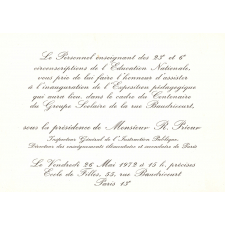 Le Personnel enseignant des 23e et 6e
circonscriptions de l'Education Nationale,
vous prie de lui faire l'honneur d'assister
à l'inauguration de l'Exposition pédagogique
qui aura lieu, dans le cadre du Centenaire
du Groupe Scolaire de la rue Baudricourt,
sous la présidence de Monsieur R. Prieur
Inspecteur Général de l'Instruction Publique
Directeur des enseignements élémentaires et secondaires de Paris
Le Vendredi 26 Mai 1972 à 15 h. précises
Ecole de Filles, 55, rue Baudricourt
Paris 13e